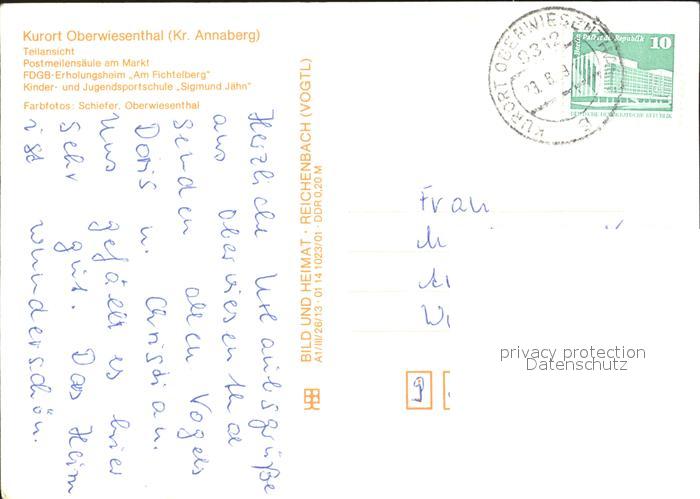 Kurort Oberwiesenthal (Kr. Annaberg)
Teilansicht
Postmeilensäule am Markt
FDGB-Erholungsheim „Am Fichtelberg"
Kinder- und Jugendsportschule „Sigmund Jähn"
Farbfotos: Schiefer, Oberwiesenthal
Herzliche Urlaubsgrüße
aus Oberwiesenthal
senden allen Vogels
Doris u. Christian.
Uns gefällt es hier
sehr gut. Das Heim
ist wunderschön.
BILD UND HEIMAT · REICHENBACH (VOGTL)
A1/III/26/13 · 01 14 1023/01 · DDR 0,20 M
KURORT OBERWIESENTHAL
9312
Berlin Palast der Republik
10
DEUTSCHE DEMOKRATISCHE REPUBLIK
Frau
privacy protection
Datenschutz